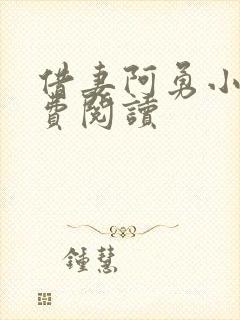 借妻阿勇小
費閱讀
鍾慧